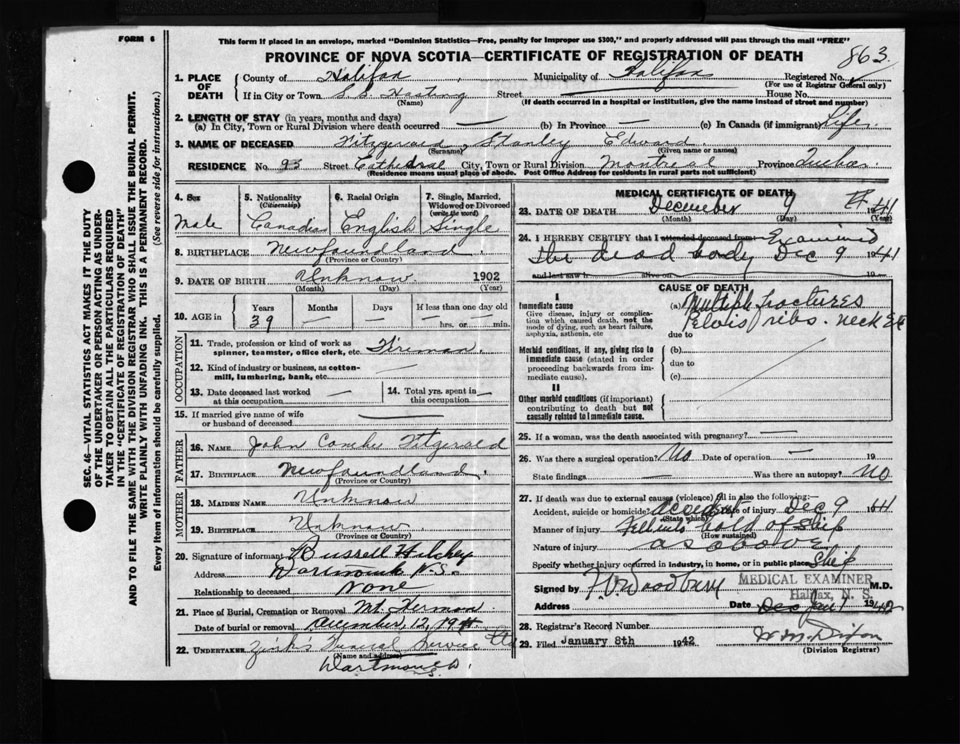 FORM 6
This form if placed in an envelope, marked "Dominion Statistics—Free, penalty for improper use $300," and properly addressed will pass through the mail "FREE"
PROVINCE OF NOVA SCOTIA—CERTIFICATE OF REGISTRATION OF DEATH
863
1. PLACE OF DEATH
County of Halifax Municipality of Halifax Registered No.
(For use of Registrar General only)
If in City or Town S.S. Street House No.
(Name) (If death occurred in a hospital or institution, give the name instead of street and number)
2. LENGTH OF STAY (in years, months and days)
(a) In City, Town or Rural Division where death occurred — (b) In Province — (c) In Canada (if immigrant) Life
3. NAME OF DECEASED Fitzgerald, Stanley Edward
(Surname) (Given name or names)
RESIDENCE No. 95 Street Cathedral City, Town or Rural Division Montreal Province Quebec
(Residence means usual place of abode. Post Office Address for residents in rural parts not sufficient)
4. Sex
Male
5. Nationality (Citizenship)
Canadian
6. Racial Origin
English
7. Single, Married, Widowed or Divorced (write the word)
Single
8. BIRTHPLACE Newfoundland
(Province or Country)
9. DATE OF BIRTH Unknow 1902
(Month) (Day) (Year)
10. AGE in Years Months Days If less than one day old
39 — — hrs. or min.
OCCUPATION
11. Trade, profession or kind of work as spinner, teamster, office clerk, etc. Fireman
12. Kind of industry or business, as cotton-mill, lumbering, bank, etc.
13. Date deceased last worked at this occupation —
14. Total yrs. spent in this occupation —
15. If married give name of wife or husband of deceased —
FATHER
16. NAME John Fitzgerald
17. BIRTHPLACE Newfoundland
(Province or Country)
MOTHER
18. MAIDEN NAME Unknow
19. BIRTHPLACE Unknow
(Province or Country)
20. Signature of informant Russell
Address Dartmouth N.S.
Relationship to deceased None
21. Place of Burial, Cremation or Removal Mt. Hermon
Date of burial or removal December 12, 1941
22. UNDERTAKER Zink's Funeral Service Ltd
(Name and address)
Dartmouth
MEDICAL CERTIFICATE OF DEATH
23. DATE OF DEATH December 9 1941
(Month) (Day) (Year)
24. I HEREBY CERTIFY that I attended deceased from Examined
the dead body Dec 9 1941
and last saw h alive on 19
CAUSE OF DEATH
I
Immediate cause
Give disease, injury or complication which caused death, not the mode of dying, such as heart failure, asphyxia, asthenia, etc
(a) Multiple fractures
Pelvis ribs. neck Etc
due to
Morbid conditions, if any, giving rise to immediate cause (stated in order proceeding backwards from immediate cause).
(b)
due to
(c)
II
Other morbid conditions (if important) contributing to death but not causally related to immediate cause.
25. If a woman, was the death associated with pregnancy? —
26. Was there a surgical operation? No Date of operation — 19
State findings — Was there an autopsy? No
27. If death was due to external causes (violence) fill in also the following:
Accident, suicide or homicide? Accident Date of injury Dec 9 1941
(State which)
Manner of injury Fell into hold of ship
(How sustained)
Nature of injury as above
Specify whether injury occurred in industry, in home, or in public place Ship
Signed by F.V. Woodbury M.D.
MEDICAL EXAMINER
Halifax, N. S.
Address Date Dec Jan 1 1942
28. Registrar's Record Number
29. Filed January 8th 1942 W.M. Dixon
(Division Registrar)
SEC. 46—VITAL STATISTICS ACT MAKES IT THE DUTY
OF THE UNDERTAKER OR PERSON ACTING AS UNDER-
TAKER TO OBTAIN ALL THE PARTICULARS REQUIRED
IN THE "CERTIFICATE OF REGISTRATION OF DEATH"
AND TO FILE THE SAME WITH THE DIVISION REGISTRAR WHO SHALL ISSUE THE BURIAL PERMIT.
WRITE PLAINLY WITH UNFADING INK. THIS IS A PERMANENT RECORD.
Every item of information should be carefully supplied. (See reverse side for instructions.)